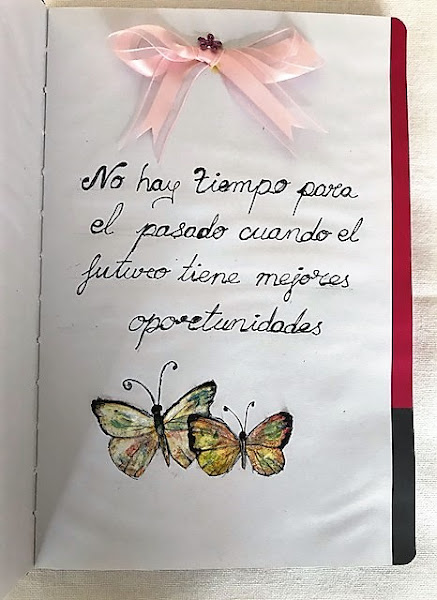 No hay tiempo para
el pasado cuando el
futuro tiene mejores
oportunidades